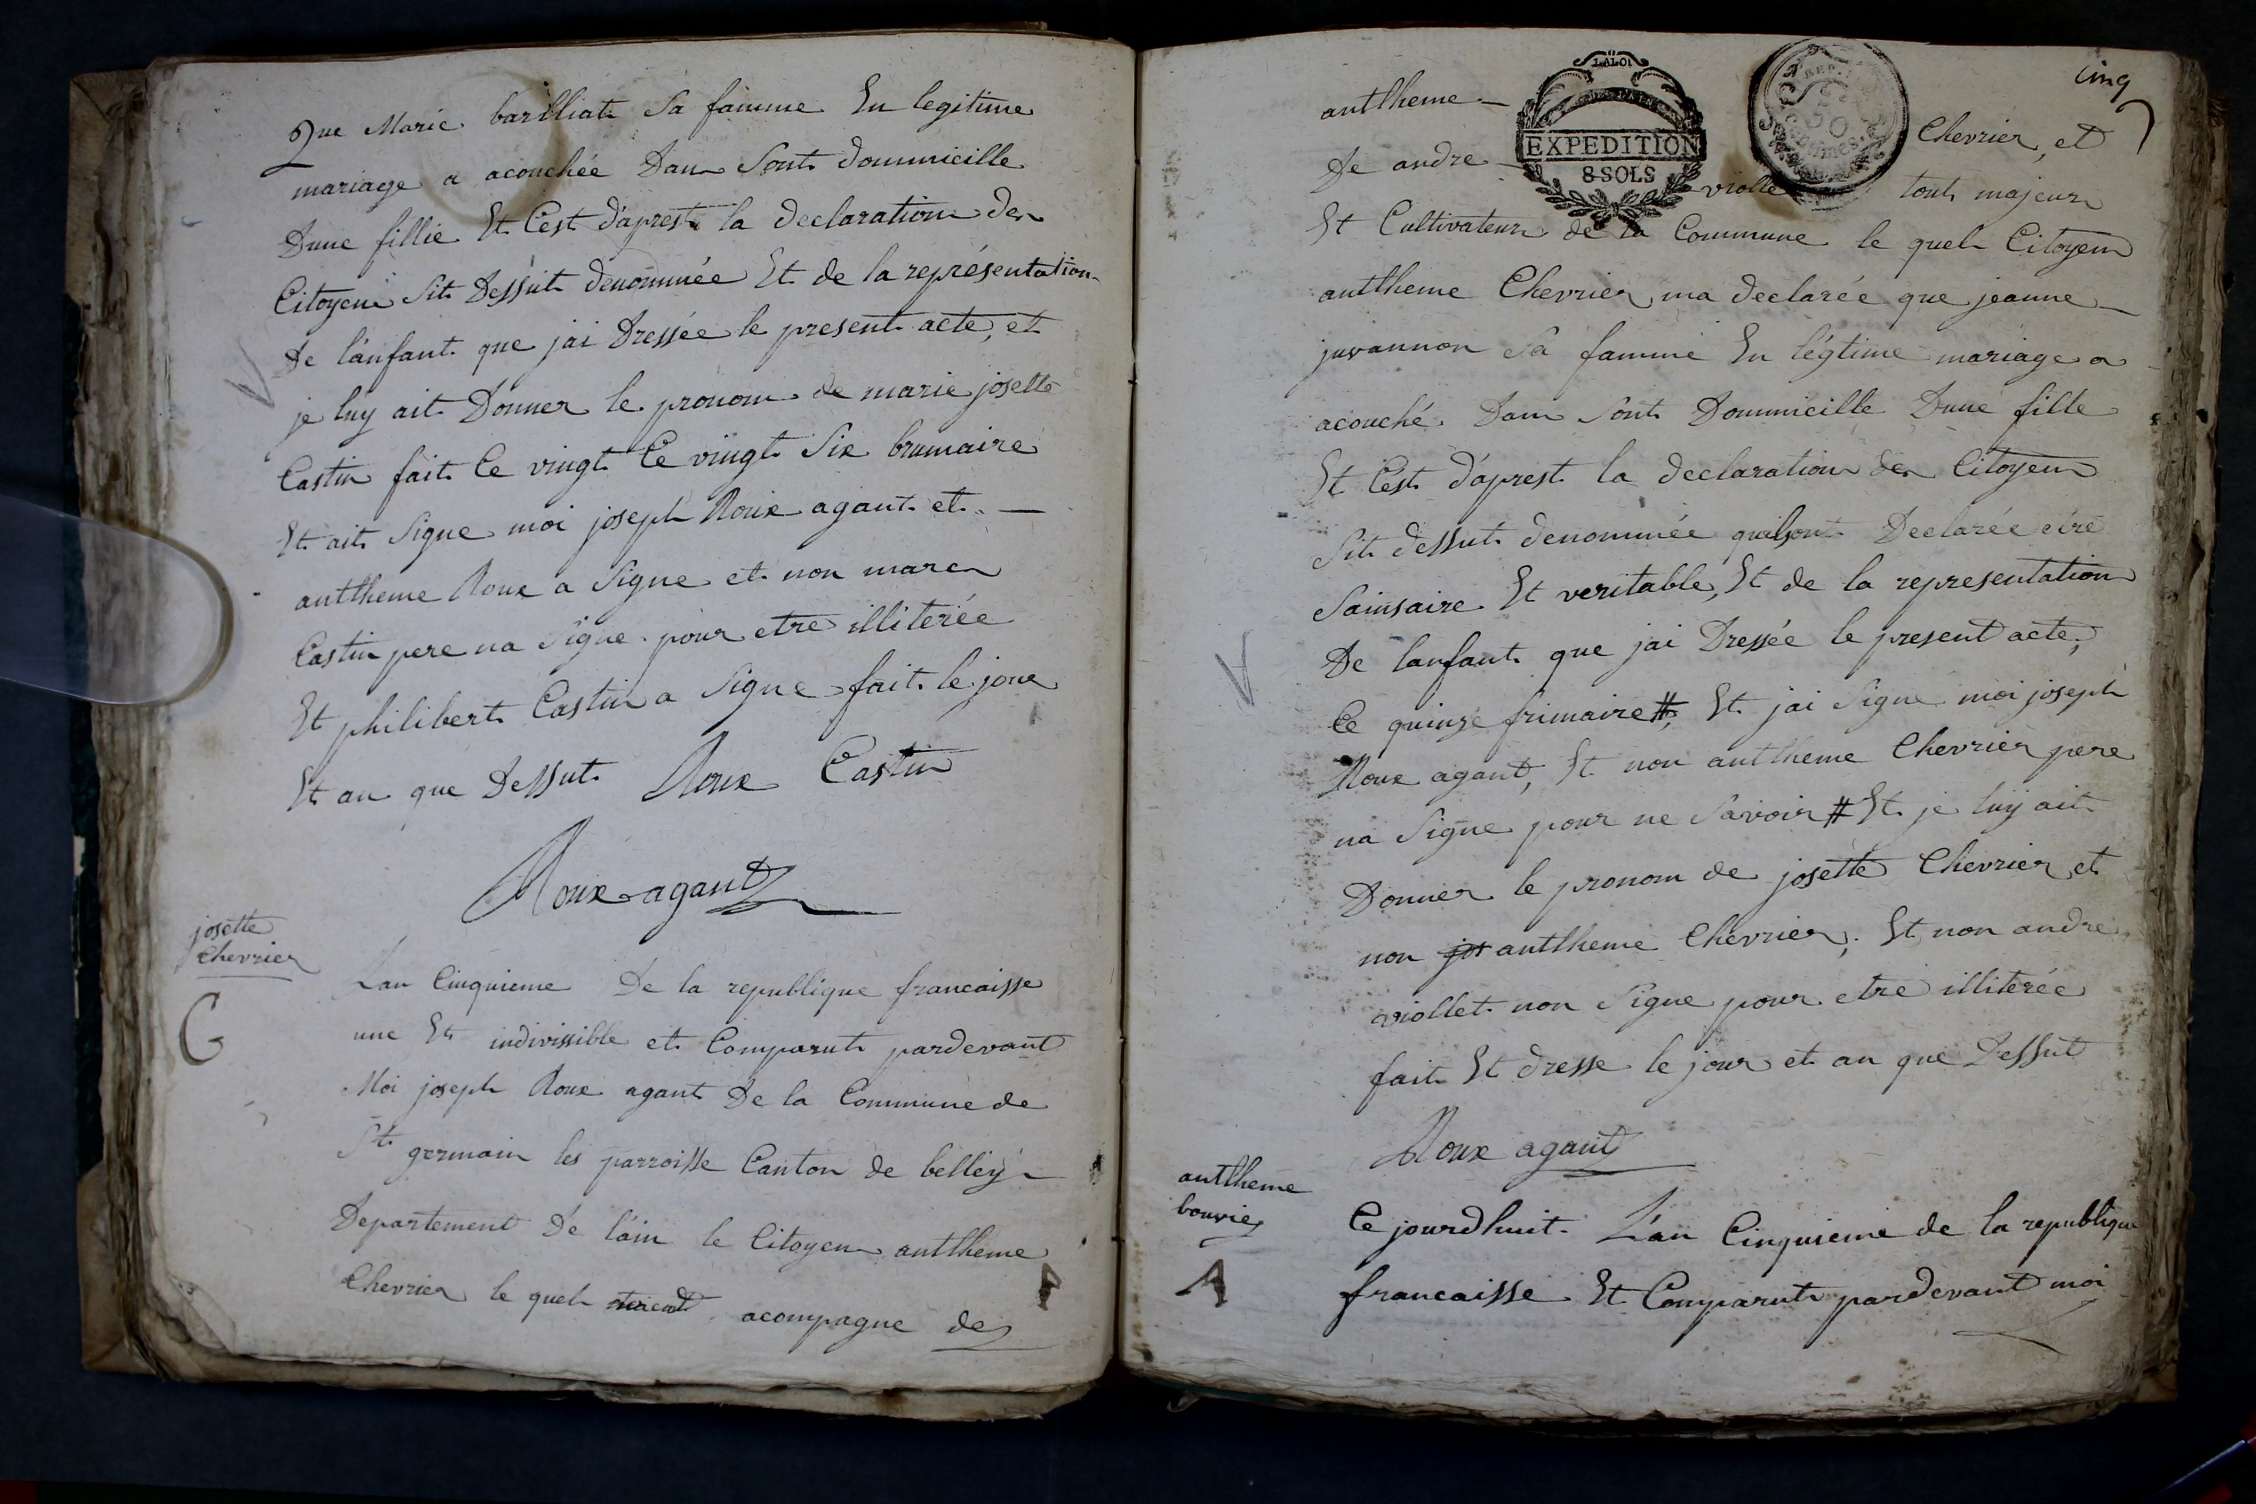 Que Marie barilliat Sa famme En legitime
mariage a acouchée Dan Sont dommicille
Dune fillie Et Cest d'aprest la declaration des
Citoyen Sit Dessut denommée Et de la représentation
De lánfant que jai Dressée le present acte, et
je luy ait Donner le pronom de marie josette
Castin fait Ce vingt Ce vingt Six brumaire
Et ait Signe moi joseph Roux agant et
anttheme Roux a Signe et non marc
Castin pere na Signe pour etre illiterée
Et philibert Castin a Signe fait le joue
Et an que Dessut Roux Castin
Roux agant
josette
Chevrier
G
Lan Cinquieme De la republique francaisse
une Et indivissible et Comparut pardevant
Moi joseph Roux agant De la Commune de
St germain les parroisse Canton de belley
Departement De láin le Citoyen anttheme
Chevrier le quel acompagne de
cinq
anttheme Chevrier, et
De andre violle tout majeur
LALOI
EXPEDITION
8 SOLS
Et Cultivateur de la Commune le quel Citoyen
anttheme Chevrier ma declarée que jeanne
juvannon Sa famme En légtime mariage a
acouché Dam Sont Dommicille Dune fille
Et Cest d'aprest la declaration des Citoyen
Sit dessut denommée quilsont Declarée etre
Sainsaire Et veritable, Et de la representation
De lanfant que jai Dressée le present acte,
Ce quinze frimaire #, Et jai Signe moi joseph
Roux agant, Et non anttheme Chevrier pere
na Signe pour ne Savoir # Et je luy ait
Donner le pronom de josette Chevrier et
non anttheme Chevrier, Et non andre
viollet non Signe pour etre illiterée
fait Et dresse le jour et an que Dessut
Roux agant
anttheme
bouvier
A
Ce jourdhuit L'an Cinquieme de la republique
francaisse Et Comparut pardevant moi